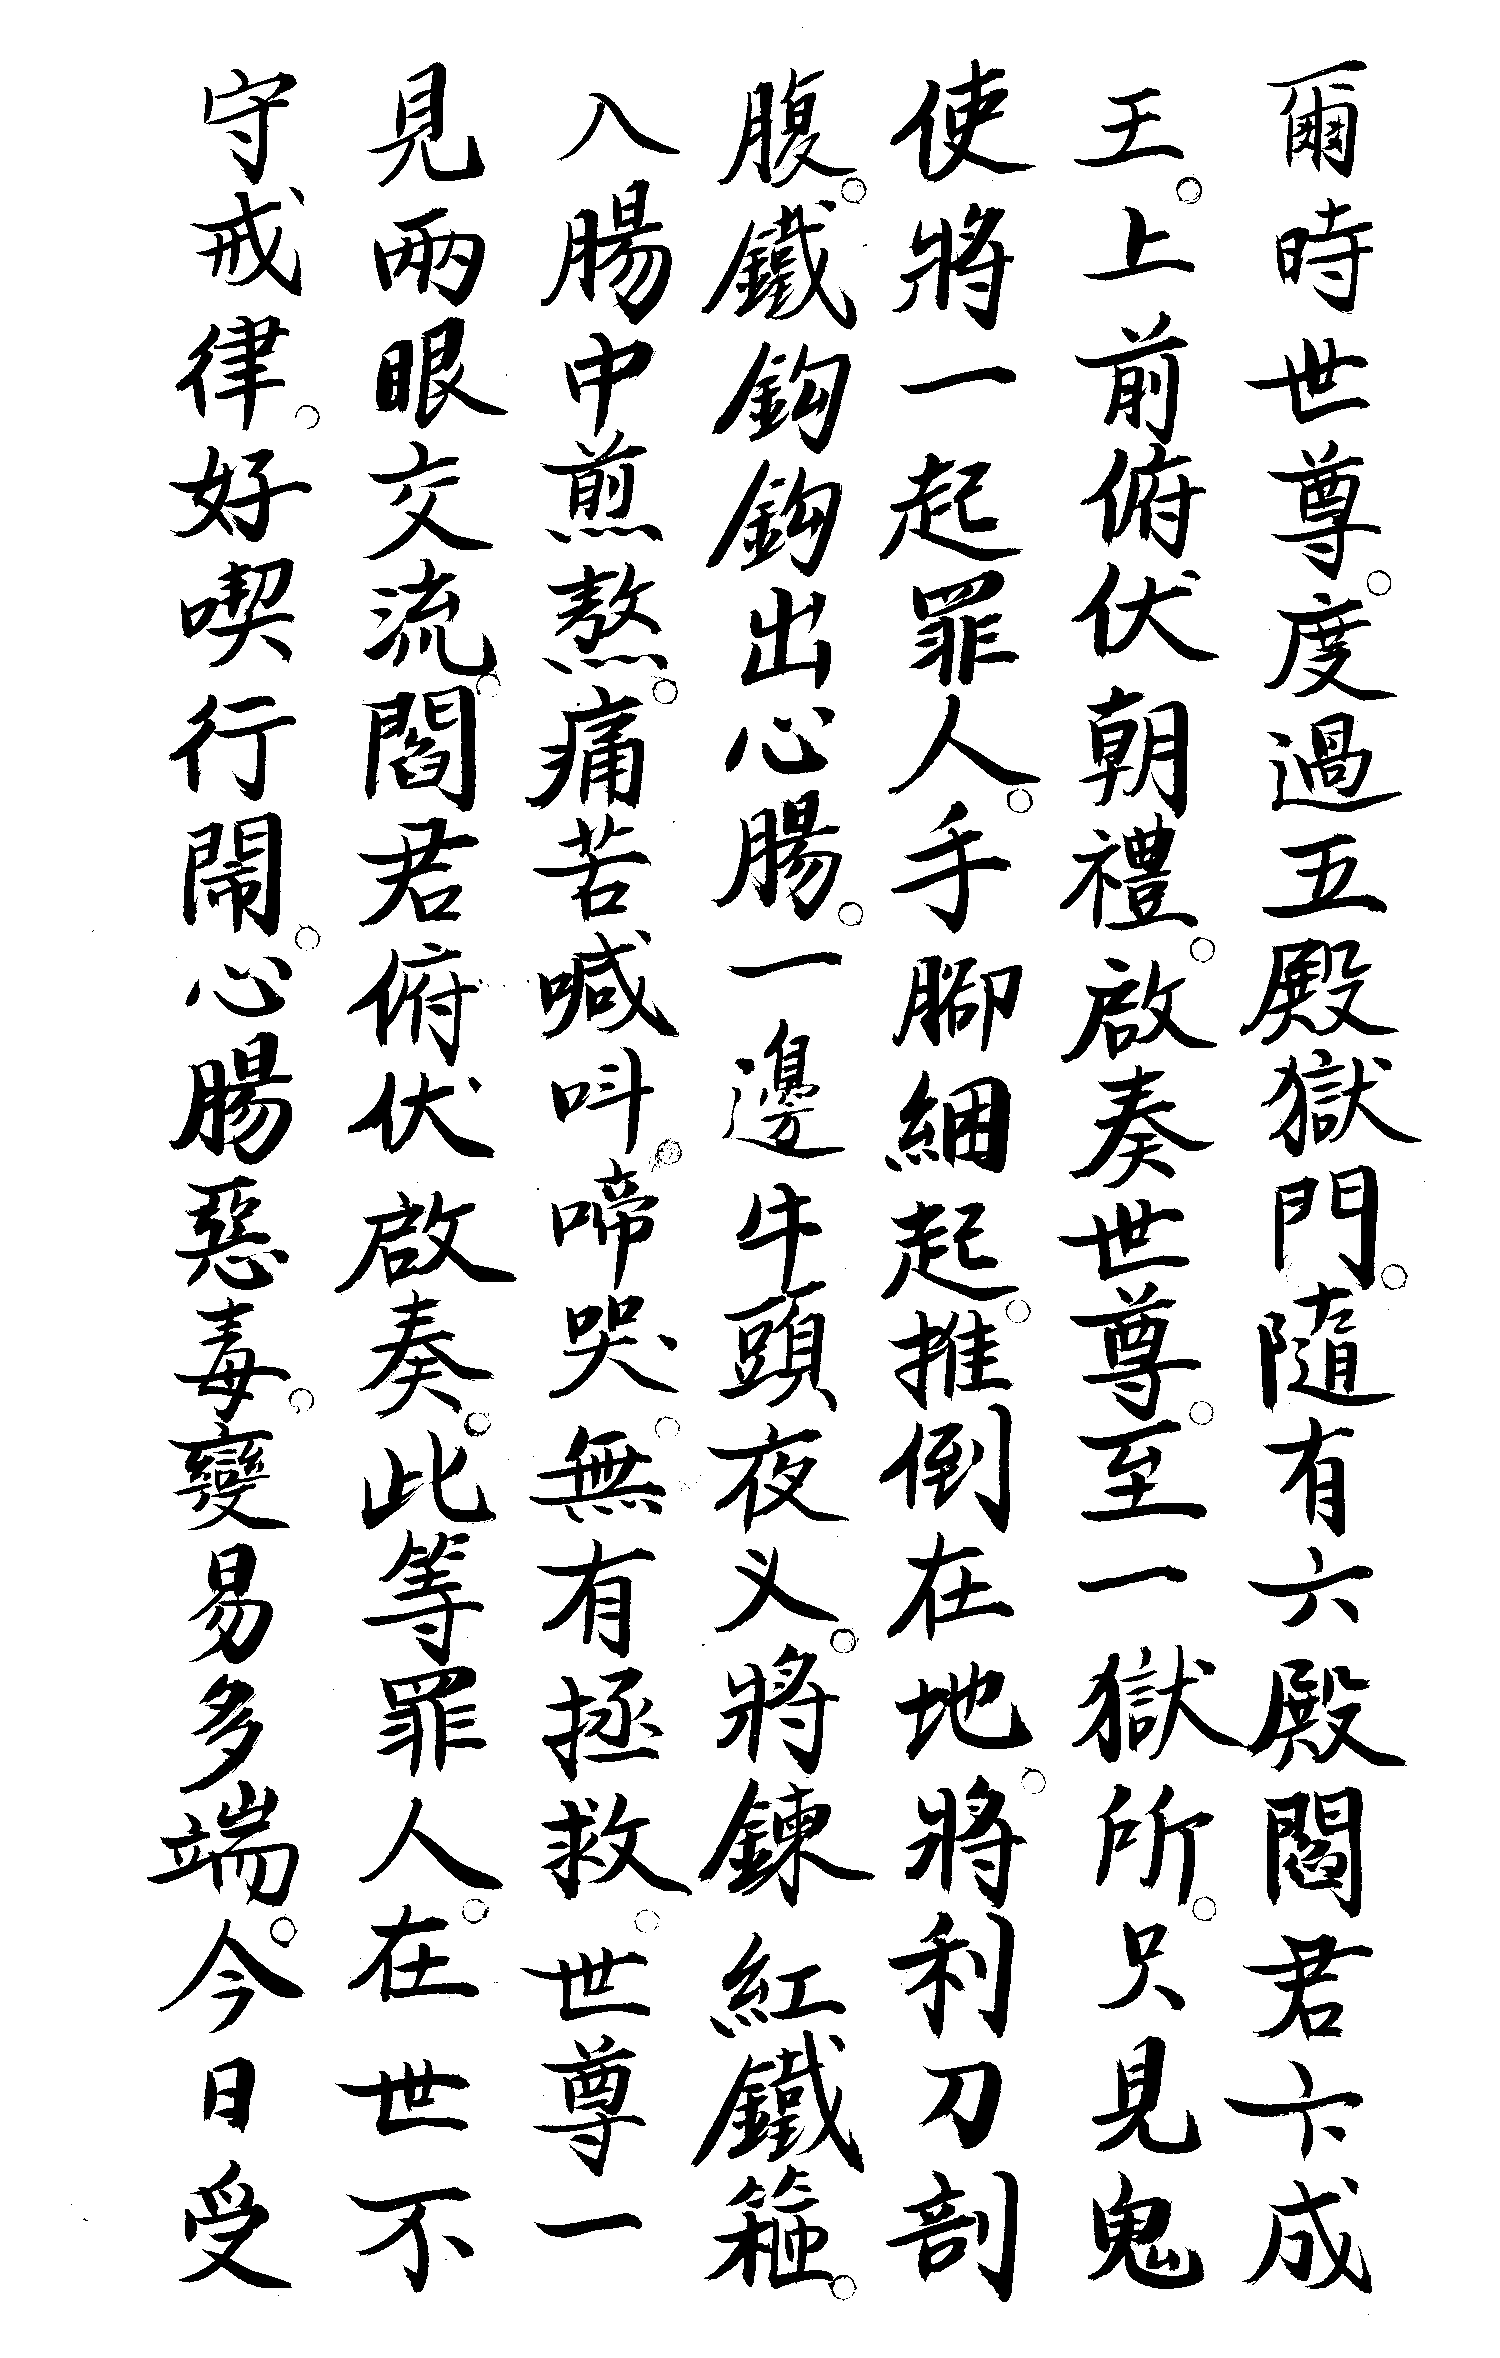 爾時世尊。度過五殿獄門。隨有六殿閻君卞成
王。上前俯伏朝禮。啟奏世尊。至一獄所。只見鬼
使將一起罪人。手腳綑起。推倒在地。將利刀剖
腹。鐵鈎鈎出心腸。一邊牛頭夜义。將鍊紅鐵箍。
入腸中煎熬。痛苦喊叫。啼哭。無有拯救。世尊一
見兩眼交流。閻君俯伏啟奏。此等罪人。在世不
守戒律。好喫行鬧。心腸惡毒。變易多端。今日受